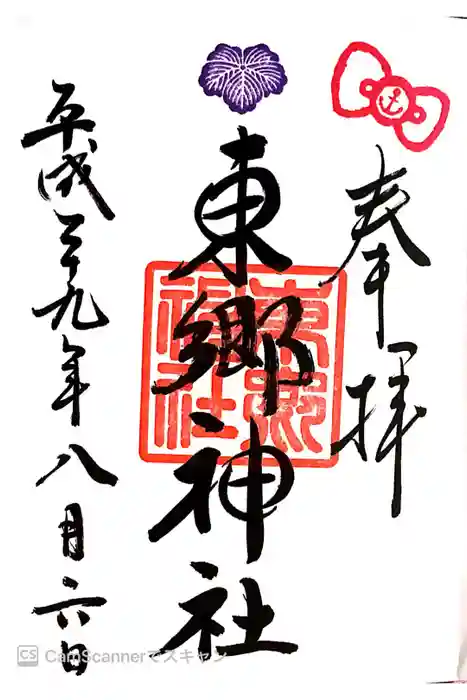 奉拝
東郷神社
東郷神社
平成二十九年八月六日
CS CamScannerでスキャン